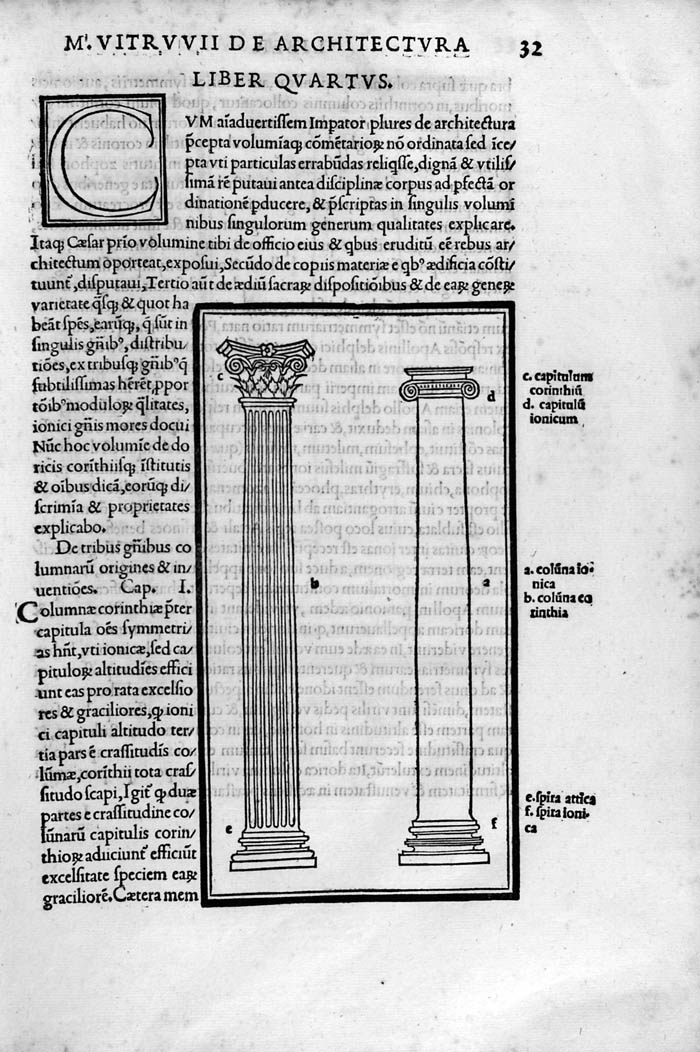 M'. VITRVVII DE ARCHITECTVRA 32
LIBER QVARTVS.
CVM aĩaduertissem Impator plures de architectura
pcepta volumiaq; cõmẽtarioꝝ nõ ordinata sed ĩce/
pta vti particulas errabũdas reliq̃sse, dignã & vtilis/
simã rẽ putaui antea disciplinæ corpus ad pfectã or
dinationẽ pducere, & pscriptas in singulis volumĩ
nibus singulorum generum qualitates explicare.
Itaq; Cæsar prĩo volumine tibi de officio eius & qbus eruditũ eẽ rebus ar/
chitectum oporteat, exposui, Secũdo de copiis materiæ e qb⁹ ædificia cõsti/
tuunt̃, disputaui, Tertio aũt de ædiũ sacraꝝ dispositiõibus & de eaꝝ geneꝝ
varietate q̃sq; & quot ha
beãt spẽs, earũq;, q̃ sũt in
singulis gñib⁹, distribu/
tiões, ex tribusq; gñib⁹ q̃
subtilissimas hẽrẽt, ppor
tõib⁹ moduloꝝ q̃litates,
ionici gñis mores docui
Nũc hoc volumĩe de do
ricis corĩthiisq; ĩstitutis
& oĩbus dicã, eorũq; di/
scrimĩa & proprietates
explicabo.
De tribus gñibus co
lumnarũ origines & in/
uentiões. Cap. I.
Columnæ corinthiæ pter
capitula oẽs symmetri/
as hñt, vti ionicæ, sed ca/
pituloꝝ altitudĩes effici
unt eas pro rata excelsio
res & graciliores, ꝙ ioni
ci capituli altitudo ter/
tia pars ẽ crassitudĩs co/
lũmæ, corĩthii tota cras/
situdo scapi, Igit̃ ꝙ duæ
partes e crassitudine co/
lũnarũ capitulis corin/
thioꝝ adiciunt̃ efficiũt
excelsitate speciem eaꝝ
graciliorẽ. Cætera mem
c
d
b
a
e
f
c. capitulum
corinthiũ
d. capitulũ
ionicum
a. colũna io-
nica
b. colũna co
rinthia
e. spira attica
f. spira ioni-
ca